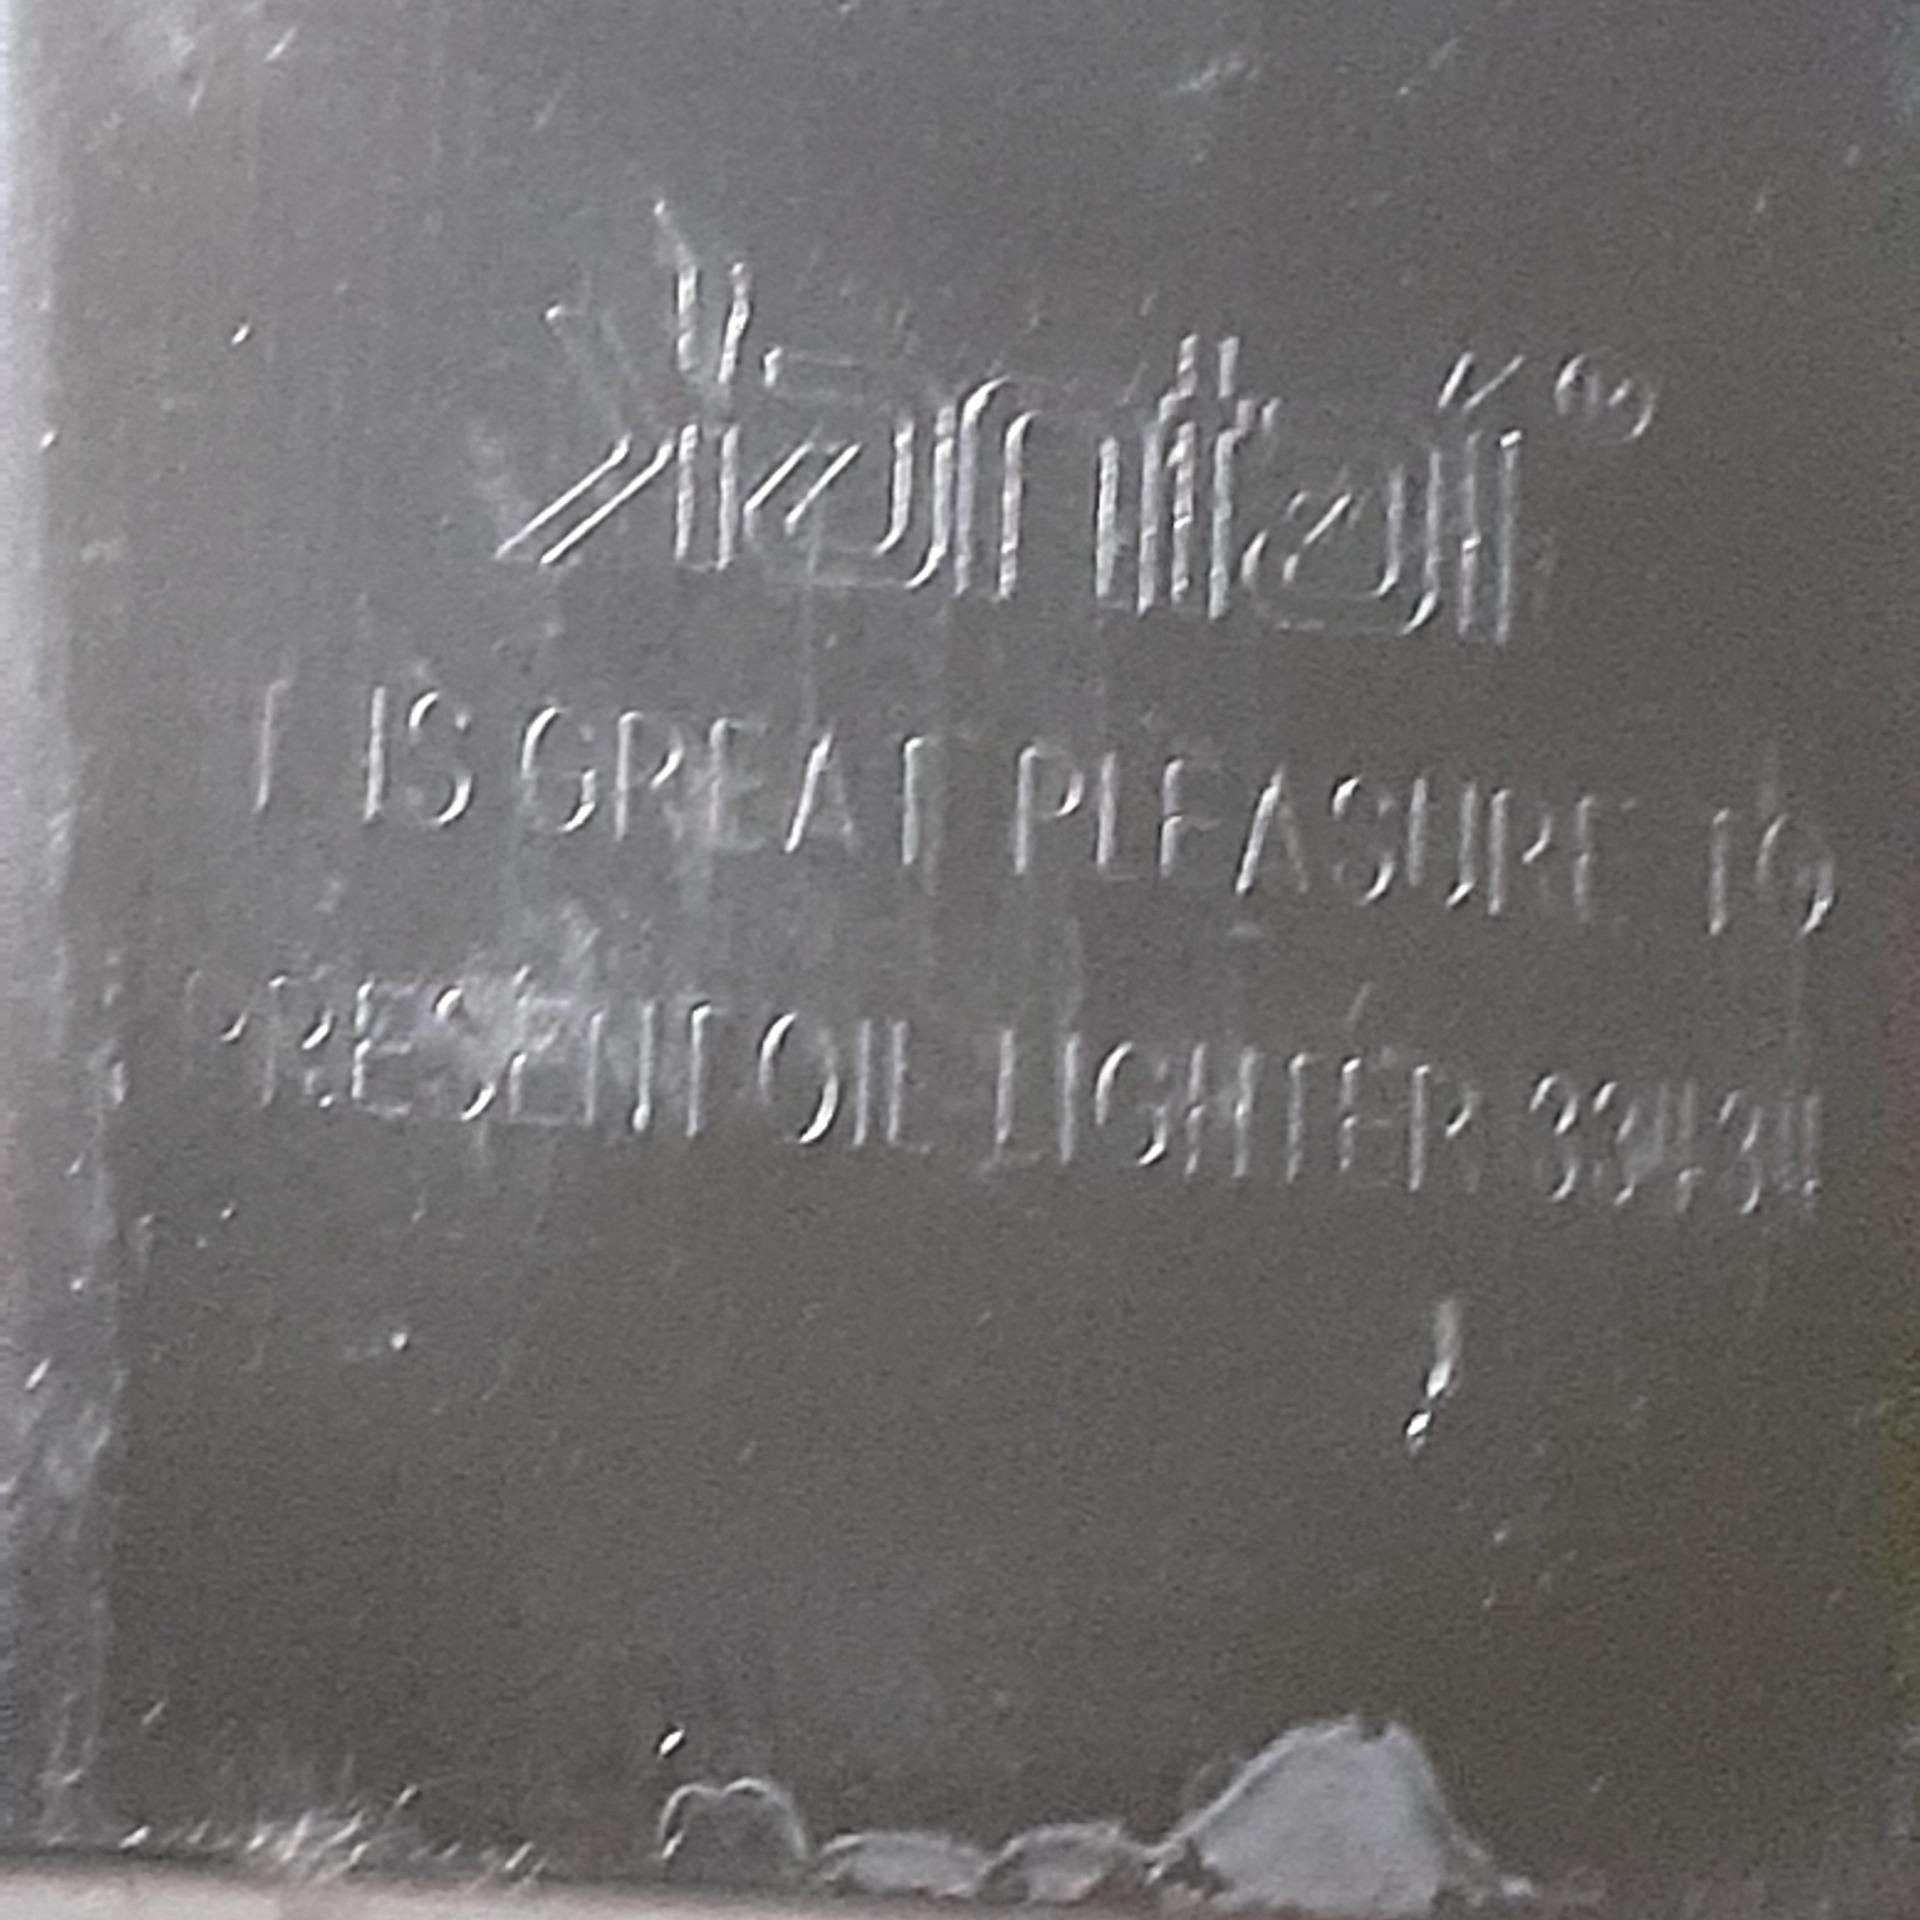 IT IS GREAT PLEASURE TO
PRESENT OIL LIGHTER 33434